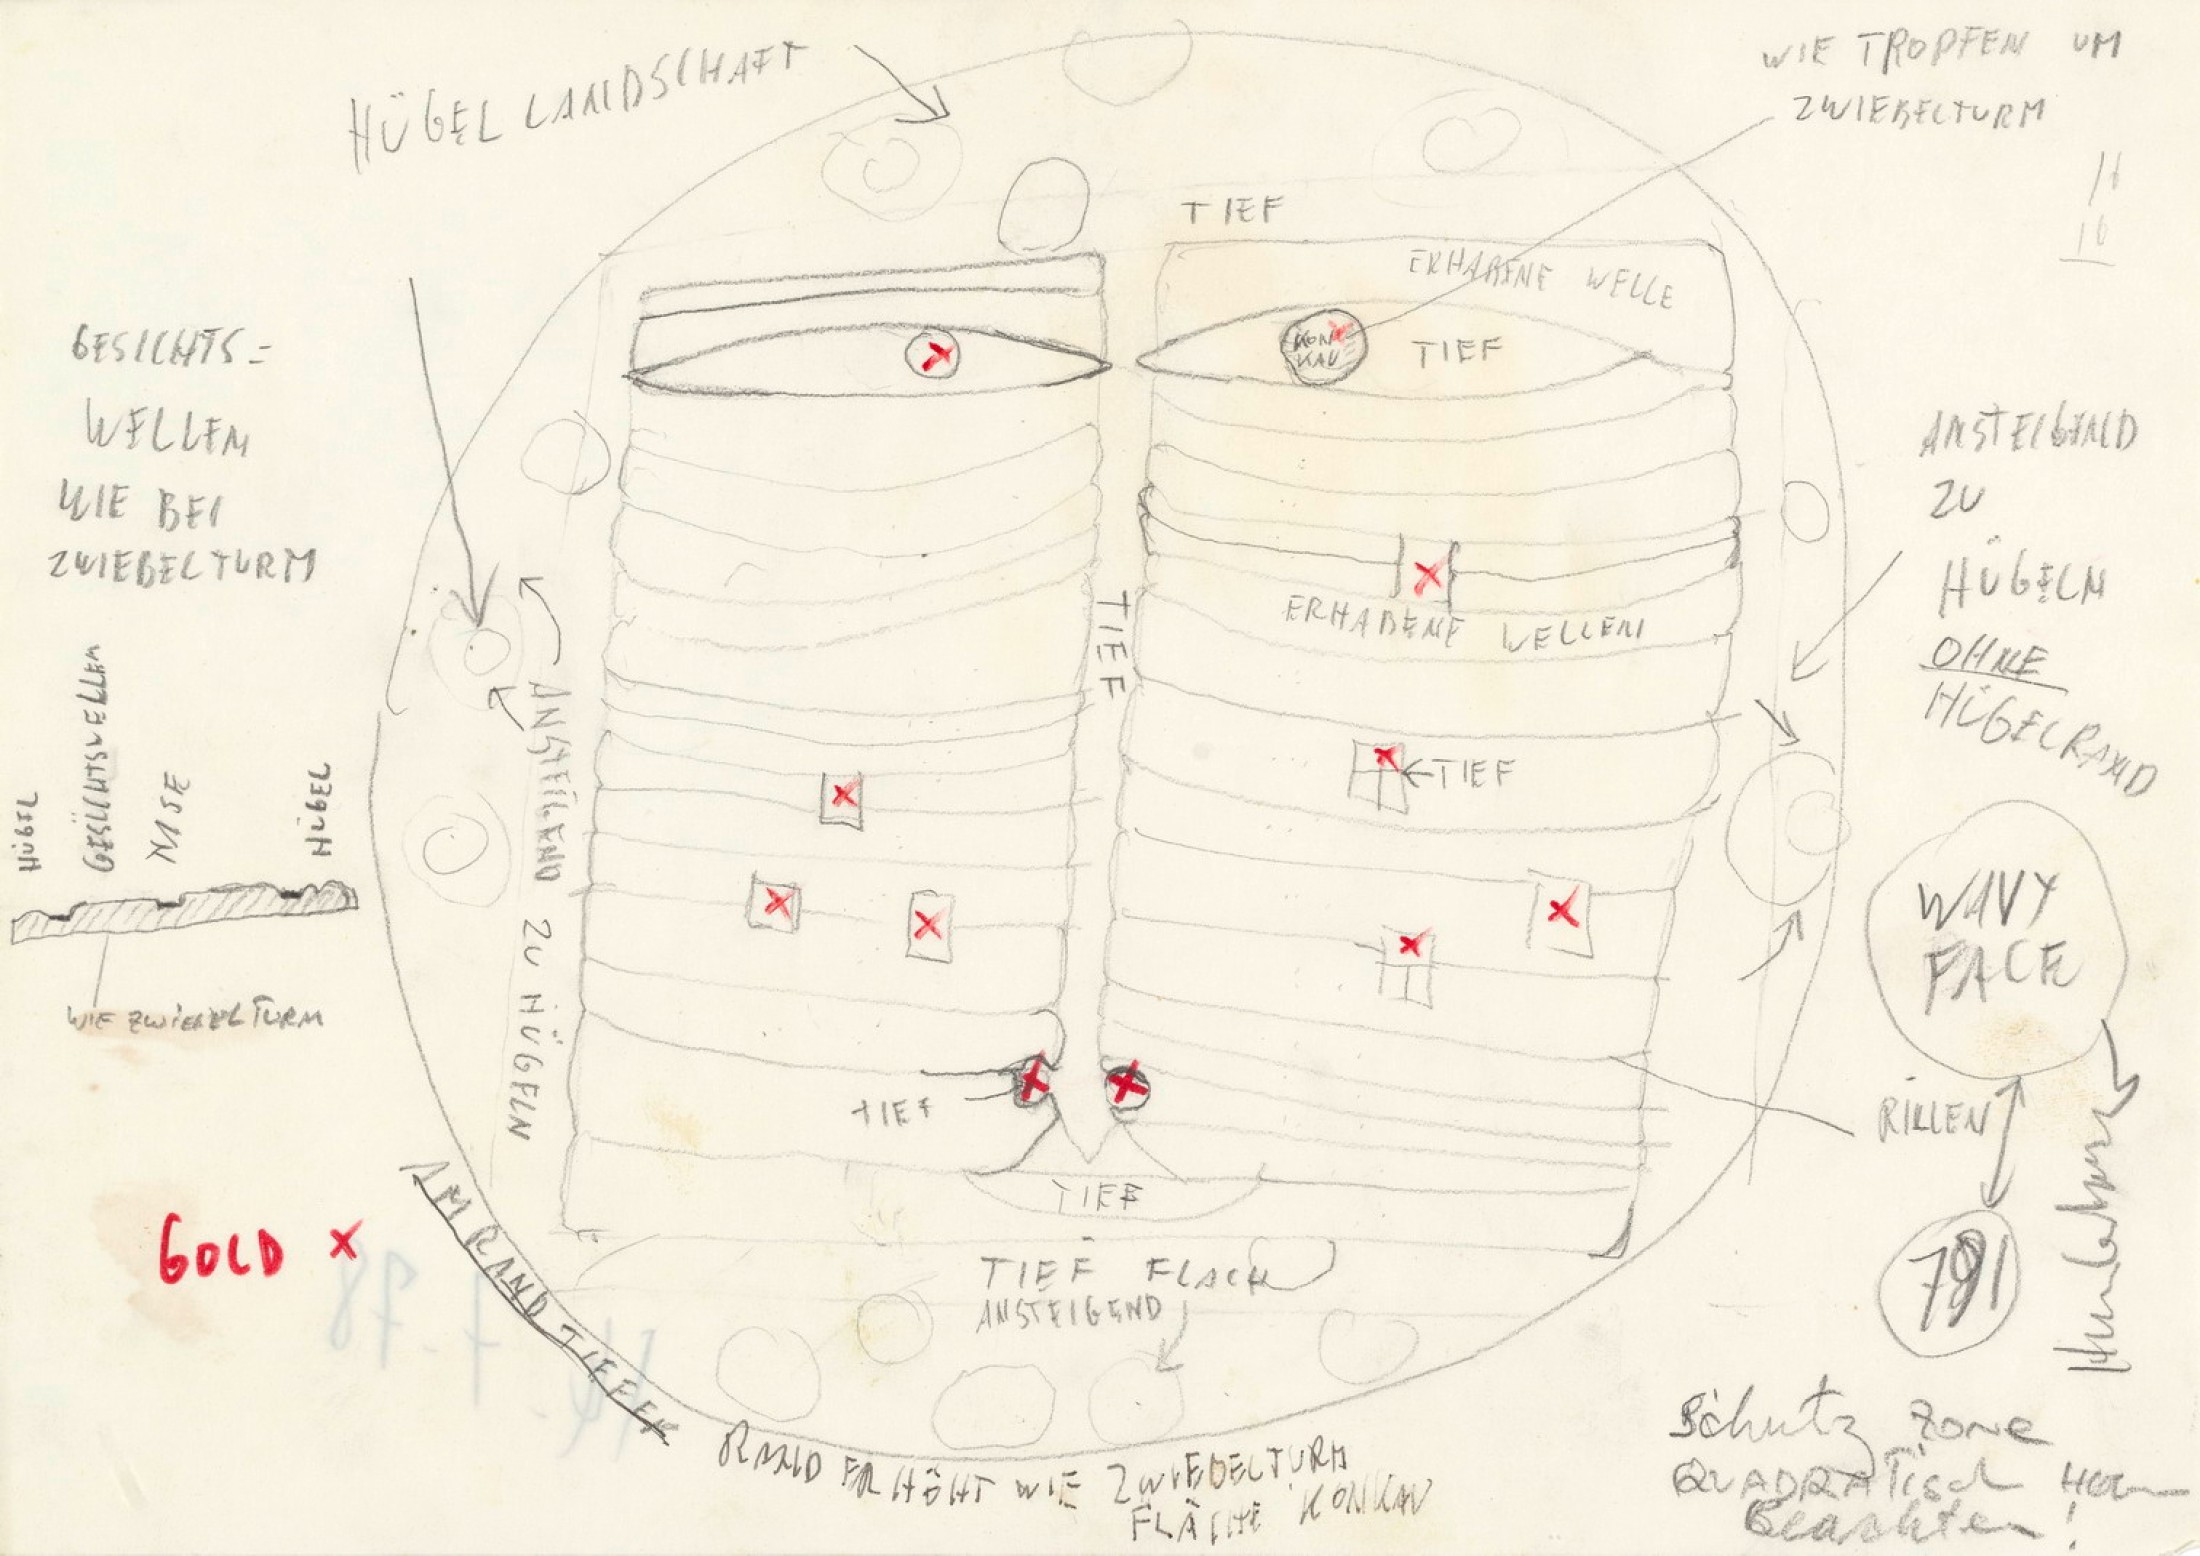 HÜGEL LANDSCHAFT
WIE TROPFEN UM
ZWIEBELTURM
16
16
TIEF
ERHABENE WELLE
KON
KAV
TIEF
GESICHTS=
WELLEN
WIE BEI
ZWIEBELTURM
ANSTEIGEND
ZU
HÜGELN
OHNE
HÜGELRAND
TIEF
ERHABENE WELLEN
ANSTEIGEND ZU HÜGELN
TIEF
HÜGEL
GESICHTSWELLEN
NASE
HÜGEL
WIE ZWIEBELTURM
WAVY
FACE
TIEF
RILLEN
TIEF
791
GOLD X
TIEF FLACH
ANSTEIGEND
AM RAND TIEFER
RAND ERHÖHT WIE ZWIEBELTURM
FLÄCHE KONKAV
Schutz Zone
QUADRATisch
Beachten!